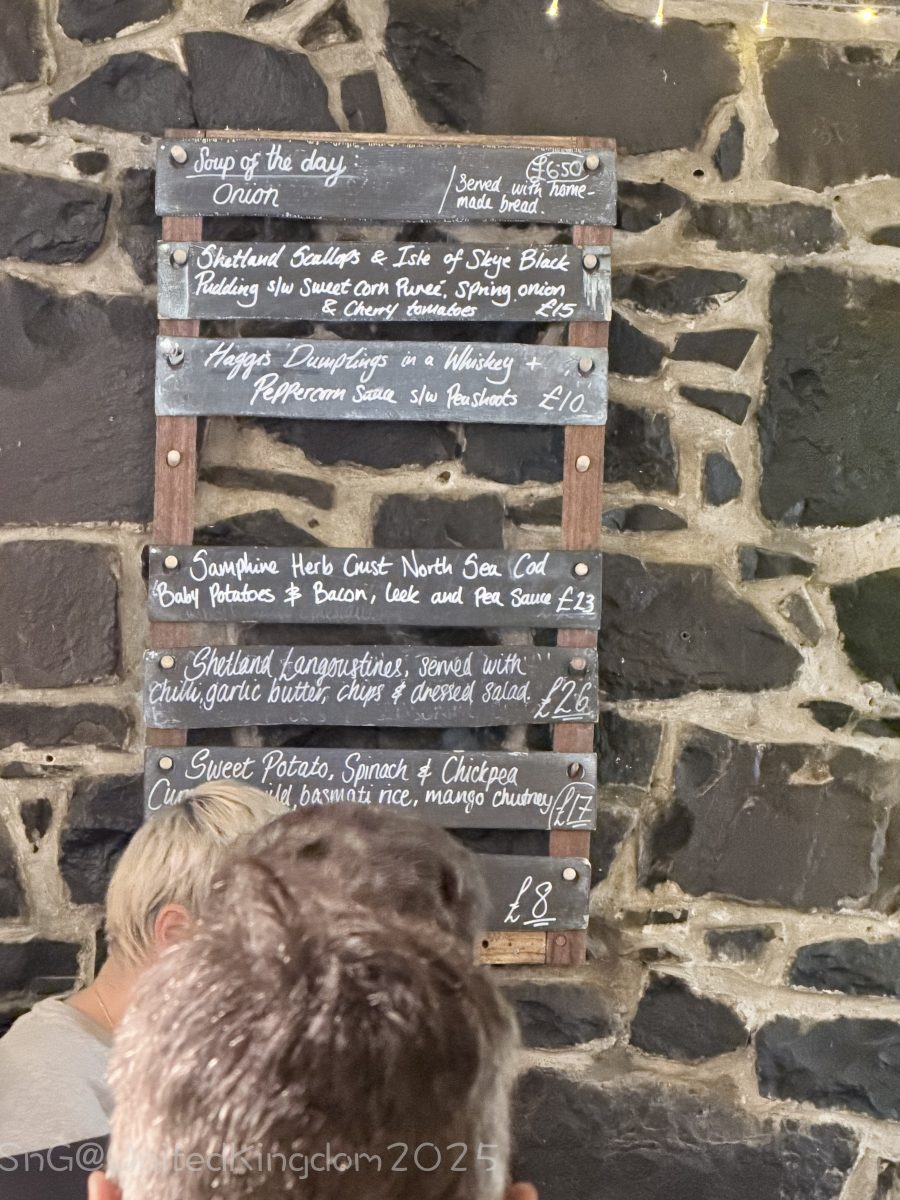 Soup of the day:
£6.50
Onion
/ Served with home-
made bread.
Shetland Scallops & Isle of Skye Black
Pudding s/w Sweet Corn Pureé, Spring onion
& Cherry tomatoes £15
Haggis Dumplings in a Whiskey +
Peppercorn Sauce s/w Peashoots £10
Samphire Herb Crust North Sea Cod
Baby Potatoes & Bacon, leek and Pea Sauce £23
Shetland Langoustines, served with
chilli, garlic butter, chips & dressed salad. £26
Sweet Potato, Spinach & Chickpea
basmati rice, mango chutney £17
£8
SnG@UnitedKingdom2025